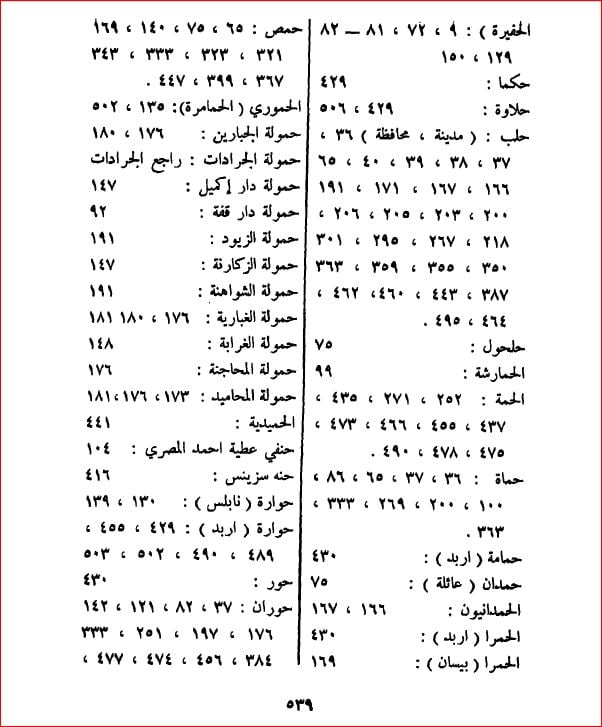 الحفيرة ) : ٩ ، ٧٢ ، ٨١ — ٨٢
١٢٩ ، ١٥٠
حكما : ٤٢٩
حلاوة : ٤٢٩ ، ٥٠٦
حلب : ( مدينة ، محافظة ) ٣٦ ،
٣٧ ، ٣٨ ، ٣٩ ، ٤٠ ، ٦٥
١٦٦ ، ١٦٧ ، ١٧١ ، ١٩١
٢٠٠ ، ٢٠٣ ، ٢٠٥ ، ٢٠٦ ،
٢١٨ ، ٢٦٧ ، ٢٩٥ ، ٣٠١
٣٥٠ ، ٣٥٥ ، ٣٥٩ ، ٣٦٣
٣٨٧ ، ٤٤٣ ، ٤٦٠ ، ٤٦٢ ،
٤٦٤ ، ٤٩٥ .
حلحول : ٧٥
الحمارشة : ٩٩
الحمة : ٢٥٢ ، ٢٧١ ، ٤٣٥ ،
٤٣٧ ، ٤٥٥ ، ٤٦٦ ، ٤٧٣ ،
٤٧٥ ، ٤٧٨ ، ٤٩٠ .
حماة : ٣٦ ، ٣٧ ، ٦٥ ، ٨٦ ،
١٠٠ ، ٢٠٠ ، ٢٦٩ ، ٣٣٣ ،
٣٦٣ .
حمامة ( اربد ) : ٤٣٠
حمدان ( عائلة ) : ٧٥
الحمدانيون : ١٦٦ ، ١٦٧
الحمرا ( اربد ) : ٤٣٠
الحمرا ( بيسان ) : ١٦٩
حمص : ٦٥ ، ٧٥ ، ١٤٠ ، ١٦٩
٣٢١ ، ٣٢٣ ، ٣٣٣ ، ٣٤٣
٣٦٧ ، ٣٩٩ ، ٤٤٧ .
الحموري ( الحمامرة ) : ١٣٥ ، ٥٠٢
حمولة الجبارين : ١٧٦ ، ١٨٠
حمولة الجرادات : راجع الجرادات
حمولة دار إكميل : ١٤٧
حمولة دار قفة : ٩٢
حمولة الزيود : ١٩١
حمولة الزكارنة : ١٤٧
حمولة الشواهنة : ١٩١
حمولة الغبارية : ١٧٦ ، ١٨٠ ١٨١
حمولة الغرابة : ١٤٨
حمولة المحاجنة : ١٧٦
حمولة المحاميد : ١٧٣ ، ١٧٦ ، ١٨١
الحميدية : ٤٤١
حنفي عطية احمد المصري : ١٠٤
حنه سزينس : ٤١٦
حوارة ( نابلس ) : ١٣٠ ، ١٣٩
حوارة ( اربد ) : ٤٢٩ ، ٤٥٥ ،
٤٨٩ ، ٤٩٠ ، ٥٠٢ ، ٥٠٣
حور : ٤٣٠
حوران : ٣٧ ، ٨٢ ، ١٢١ ، ١٤٢
١٧٦ ، ١٩٧ ، ٢٥١ ، ٣٣٣
٣٨٤ ، ٤٥٦ ، ٤٧٤ ، ٤٧٧ ،
٥٣٩